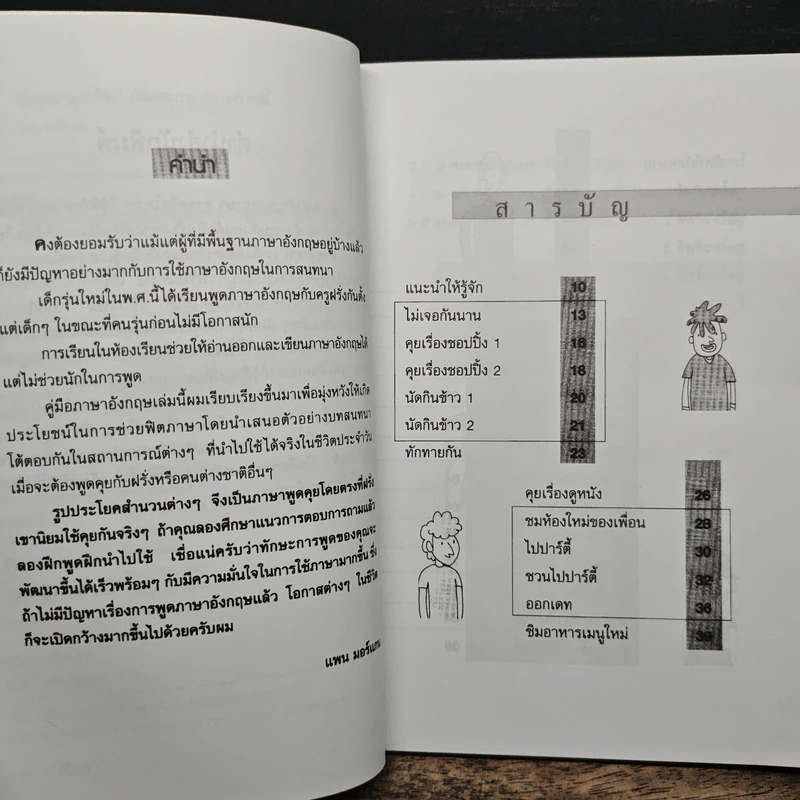 คำนำ
คงต้องยอมรับว่าแม้แต่ผู้ที่มีพื้นฐานภาษาอังกฤษอยู่บ้างแล้ว
ก็ยังมีปัญหาอย่างมากกับการใช้ภาษาอังกฤษในการสนทนา
เด็กรุ่นใหม่ในพ.ศ.นี้ได้เรียนพูดภาษาอังกฤษกับครูฝรั่งกันตั้ง
แต่เด็กๆ ในขณะที่คนรุ่นก่อนไม่มีโอกาสนัก
การเรียนในห้องเรียนช่วยให้อ่านออกและเขียนภาษาอังกฤษได้
แต่ไม่ช่วยนักในการพูด
คู่มือภาษาอังกฤษเล่มนี้ผมเรียบเรียงขึ้นมาเพื่อมุ่งหวังให้เกิด
ประโยชน์ในการช่วยฟิตภาษาโดยนำเสนอตัวอย่างบทสนทนา
โต้ตอบกันในสถานการณ์ต่างๆ ที่นำไปใช้ได้จริงในชีวิตประจำวัน
เมื่อจะต้องพูดคุยกับฝรั่งหรือคนต่างชาติอื่นๆ
รูปประโยคสำนวนต่างๆ จึงเป็นภาษาพูดคุยโดยตรงที่ฝรั่ง
เขานิยมใช้คุยกันจริงๆ ถ้าคุณลองศึกษาแนวการตอบการถามแล้ว
ลองฝึกพูดฝึกนำไปใช้ เชื่อแน่ครับว่าทักษะการพูดของคุณจะ
พัฒนาขึ้นได้เร็วพร้อมๆ กับมีความมั่นใจในการใช้ภาษามากขึ้น ซึ่ง
ถ้าไม่มีปัญหาเรื่องการพูดภาษาอังกฤษแล้ว โอกาสต่างๆ ในชีวิต
ก็จะเปิดกว้างมากขึ้นไปด้วยครับผม
แพน มอร์แกน
สารบัญ
แนะนำให้รู้จัก 10
ไม่เจอกันนาน 13
คุยเรื่องชอปปิ้ง 1 16
คุยเรื่องชอปปิ้ง 2 18
นัดกินข้าว 1 20
นัดกินข้าว 2 21
ทักทายกัน 23
คุยเรื่องดูหนัง 26
ชมห้องใหม่ของเพื่อน 28
ไปปาร์ตี้ 30
ชวนไปปาร์ตี้ 32
ออกเดท 36
ชิมอาหารเมนูใหม่ 39